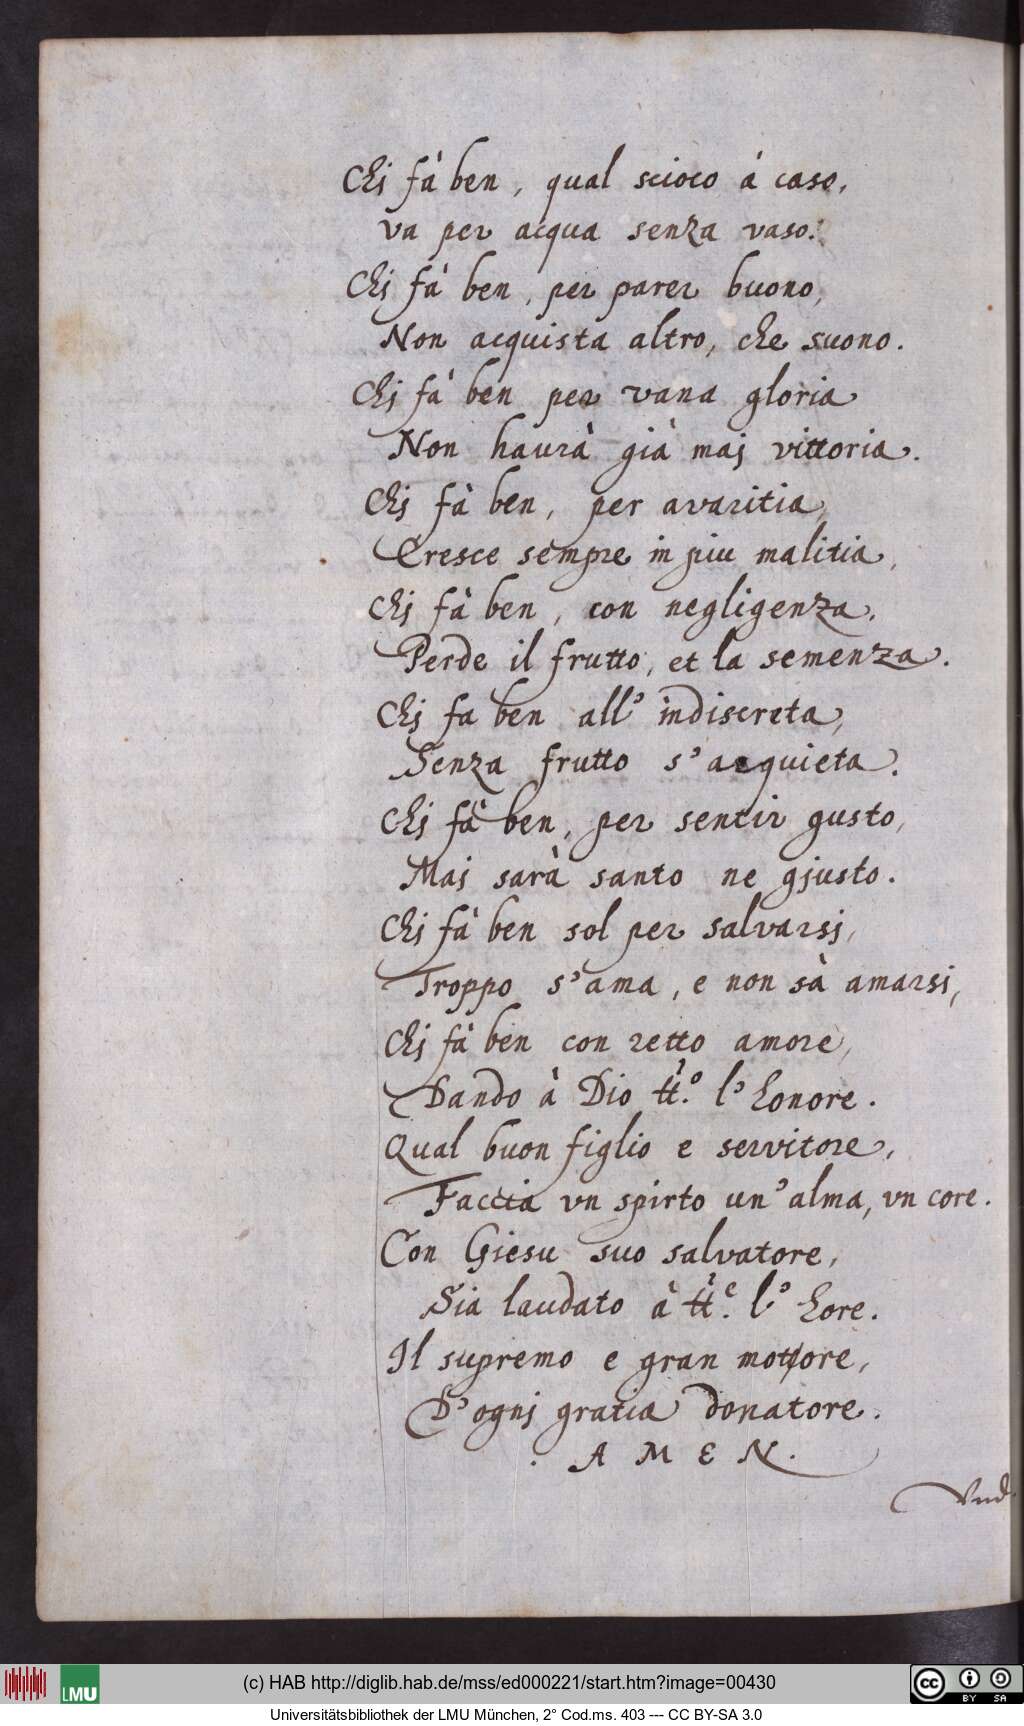 Chj fà ben, qual scioco à caso,
va per acqua senza vaso.
Chj fà ben, per parer buono,
Non acquista altro, che suono.
Chj fà ben per vana gloria
Non haurà già maj vittoria.
Chj fà ben, per avaritia,
Cresce sempre in piu malitia,
Chj fà ben, con negligenza,
Perde il frutto, et la semenza.
Chj fa ben all' indiscreta,
Senza frutto s'acquieta.
Chj fà ben, per sentir gusto,
Maj sarà santo ne gjusto.
Chj fà ben sol per salvarsj,
Troppo s'ama, e non sà amarsi,
Chj fà ben con retto amore,
Dando à Dio tt.º l' honore.
Qual buon figlio e servitore,
Faccia vn spirto un' alma, vn core.
Con Giesu suo salvatore,
Sia laudato à tt.e l' hore.
Il supremo e gran mottore,
D' ognj gratia donatore.
. A M E N.
Vnd
(c) HAB http://diglib.hab.de/mss/ed000221/start.htm?image=00430
Universitätsbibliothek der LMU München, 2° Cod.ms. 403 --- CC BY-SA 3.0
LMU
cc BY SA